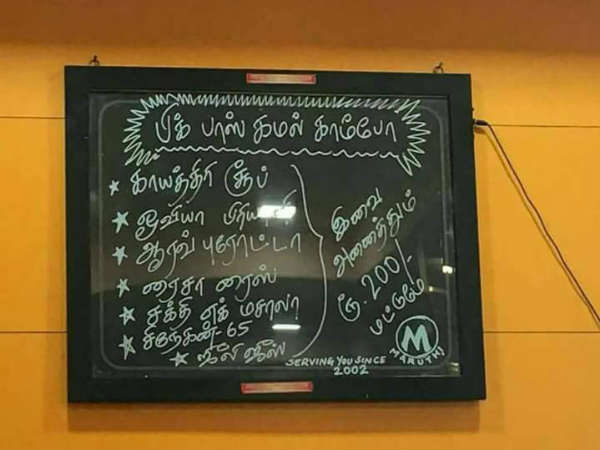 பிக் பாஸ் கமல் காம்போ
காயத்திரி சூப்
ஓவியா பிரியாணி
ஆரவ் புரோட்டா
ரைசா ரைஸ்
சக்தி எக் மசாலா
சிநேகன்-65
ஜூலி ஜூஸ்
இவை
அனைத்தும்
ரூ. 200/-
மட்டுமே
M
MARUTHI
SERVING YOU SINCE
2002